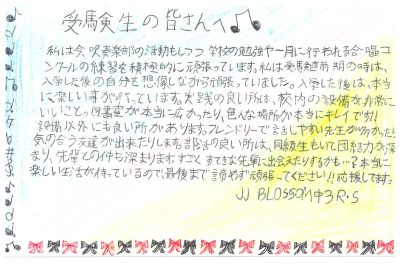 受験生の皆さんへ♪♫
私は今吹奏楽部の活動もしつつ学校の勉強や一月に行われる合唱コ
ンクールの練習を積極的に頑張っています。私は受験直前期の時は、
入学した後の自分を想像しながら頑張っていました。入学した後は、本当
に楽しい事が待っています。実践の良い所は、校内の設備が非常に
いいこと。図書室が本当に広かったり、色んな場所が本当にキレイです!!
設備以外にも良い所があります。フレンドリーで話しやすい先生が多かったり、
気の合う友達が出来たりします。部活の良い所は、同級生もいて団結力が深
まり、先輩との仲も深まります。すごくすてきな先輩に出会えたりするかも…?本当に
楽しい生活が待っているので、最後まで諦めず頑張ってください!!応援してます。
JJ BLOSSOM中3R・S